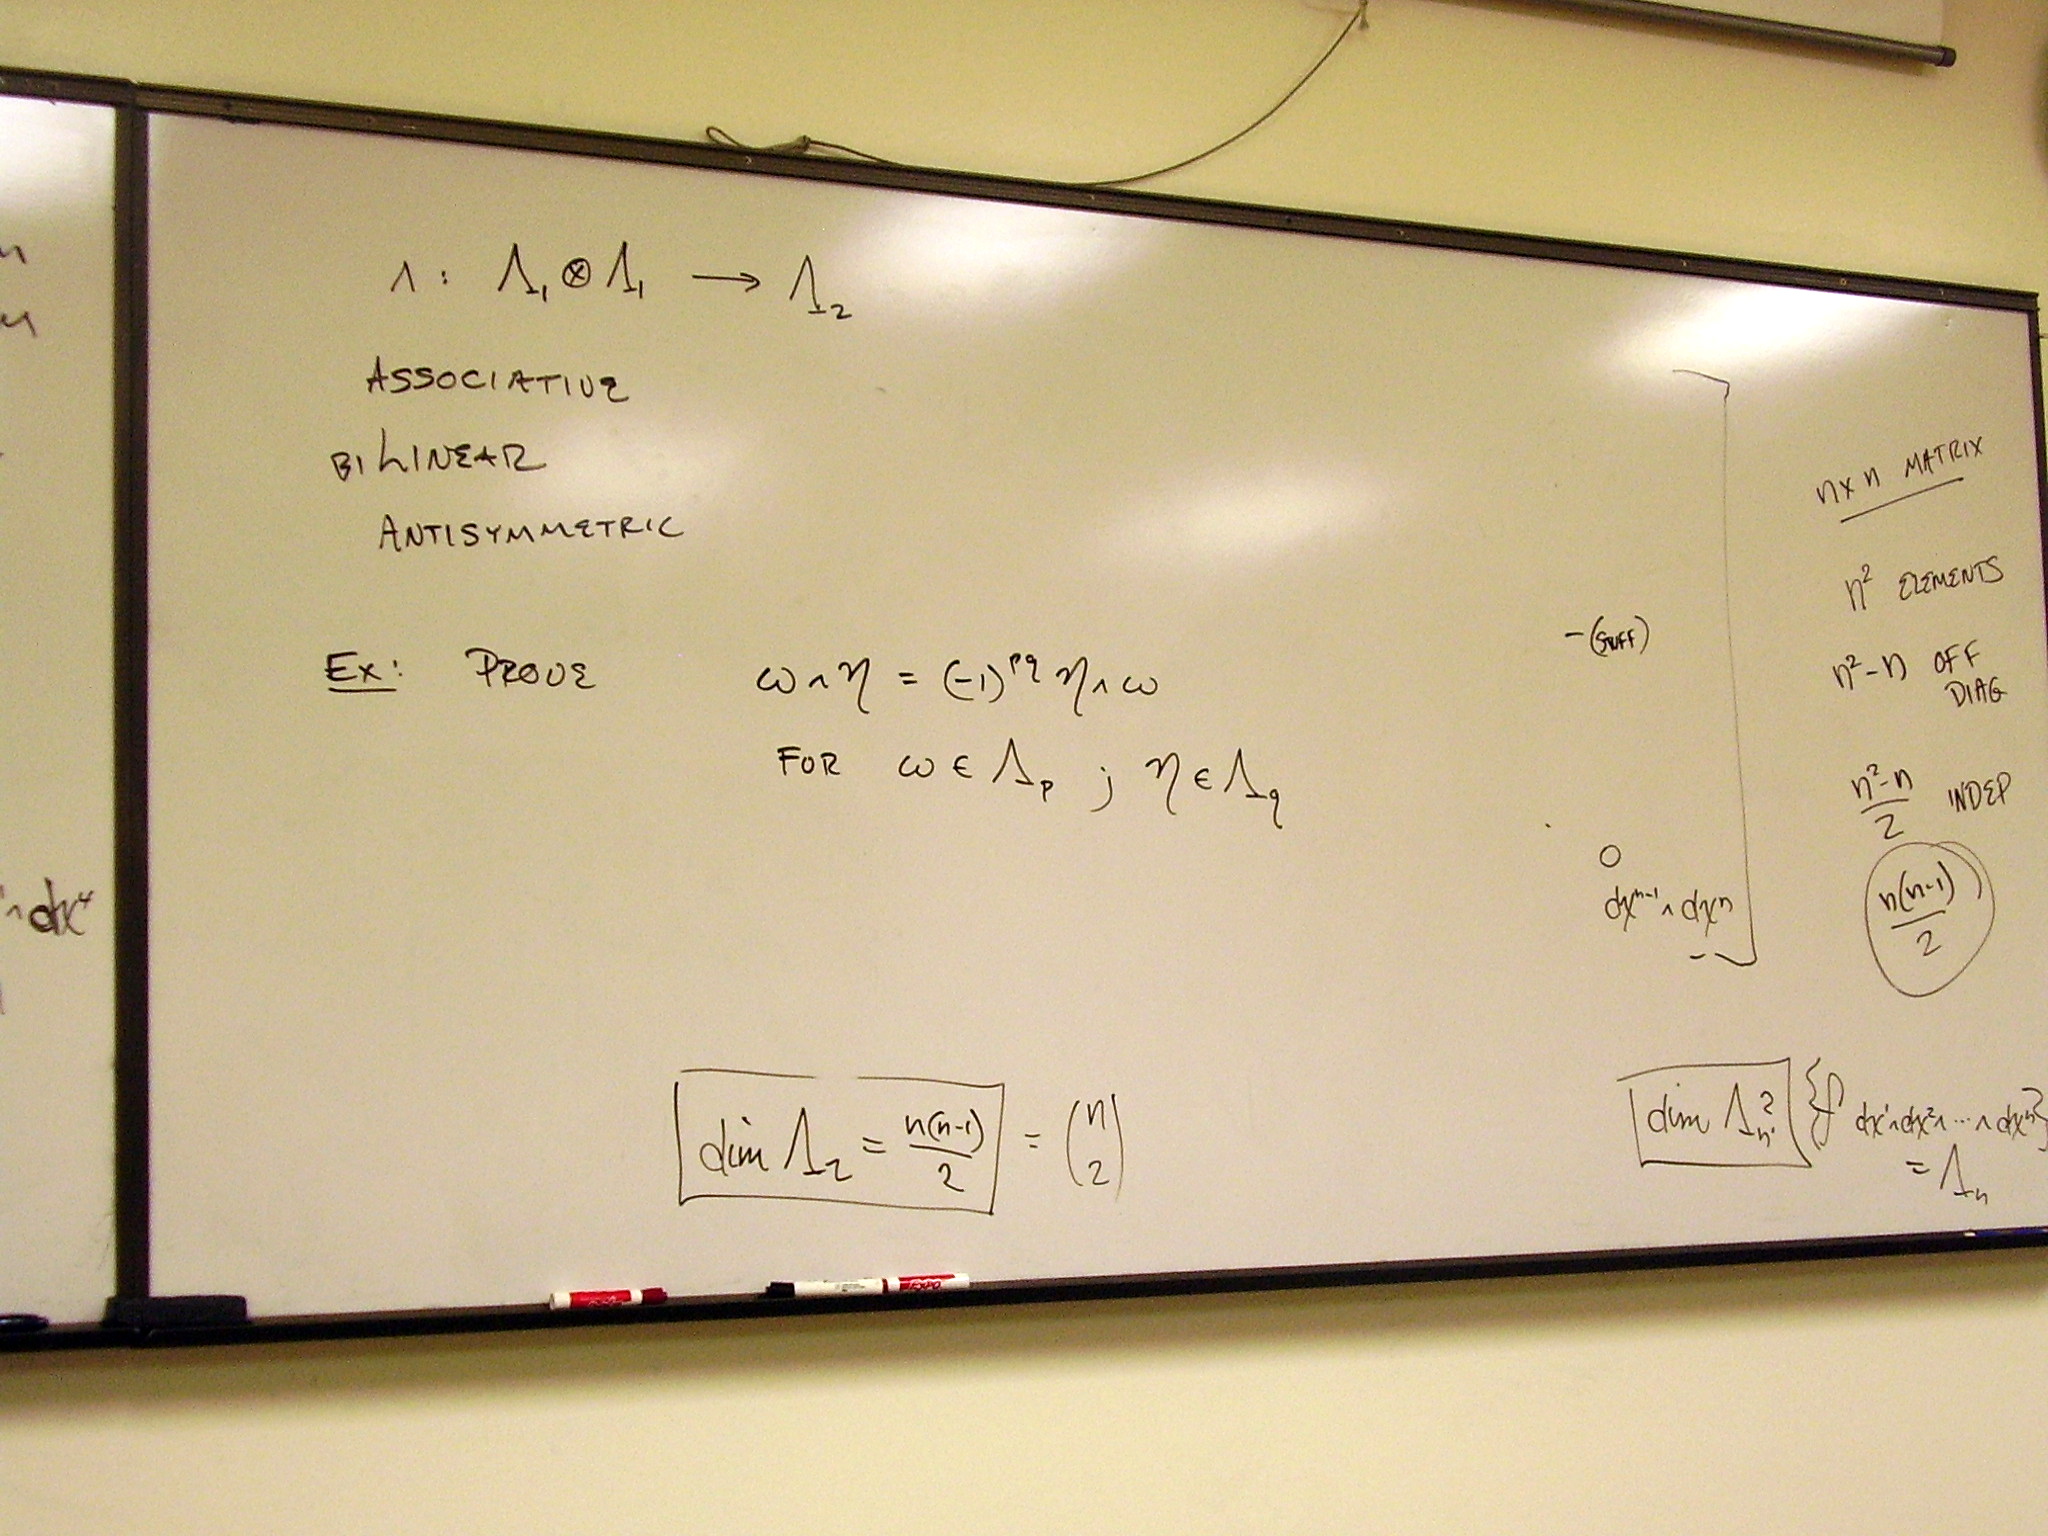 ∧ : Λ₁ ⊗ Λ₁ → Λ₂
ASSOCIATIVE
BILINEAR
ANTISYMMETRIC
Ex: PROVE ω∧η = (-1)^{pq} η∧ω
FOR ω ∈ Λ_p ; η ∈ Λ_q
dim Λ₂ = n(n-1)/2 = (n 2)
∧dx⁴
-(STUFF)
0
dx^{n-1} ∧ dx^n
n×n MATRIX
n² ELEMENTS
n²-n OFF
DIAG
(n²-n)/2 INDEP
n(n-1)/2
dim Λ_n? {f dx¹∧dx²∧···∧dxⁿ}
= Λ_n